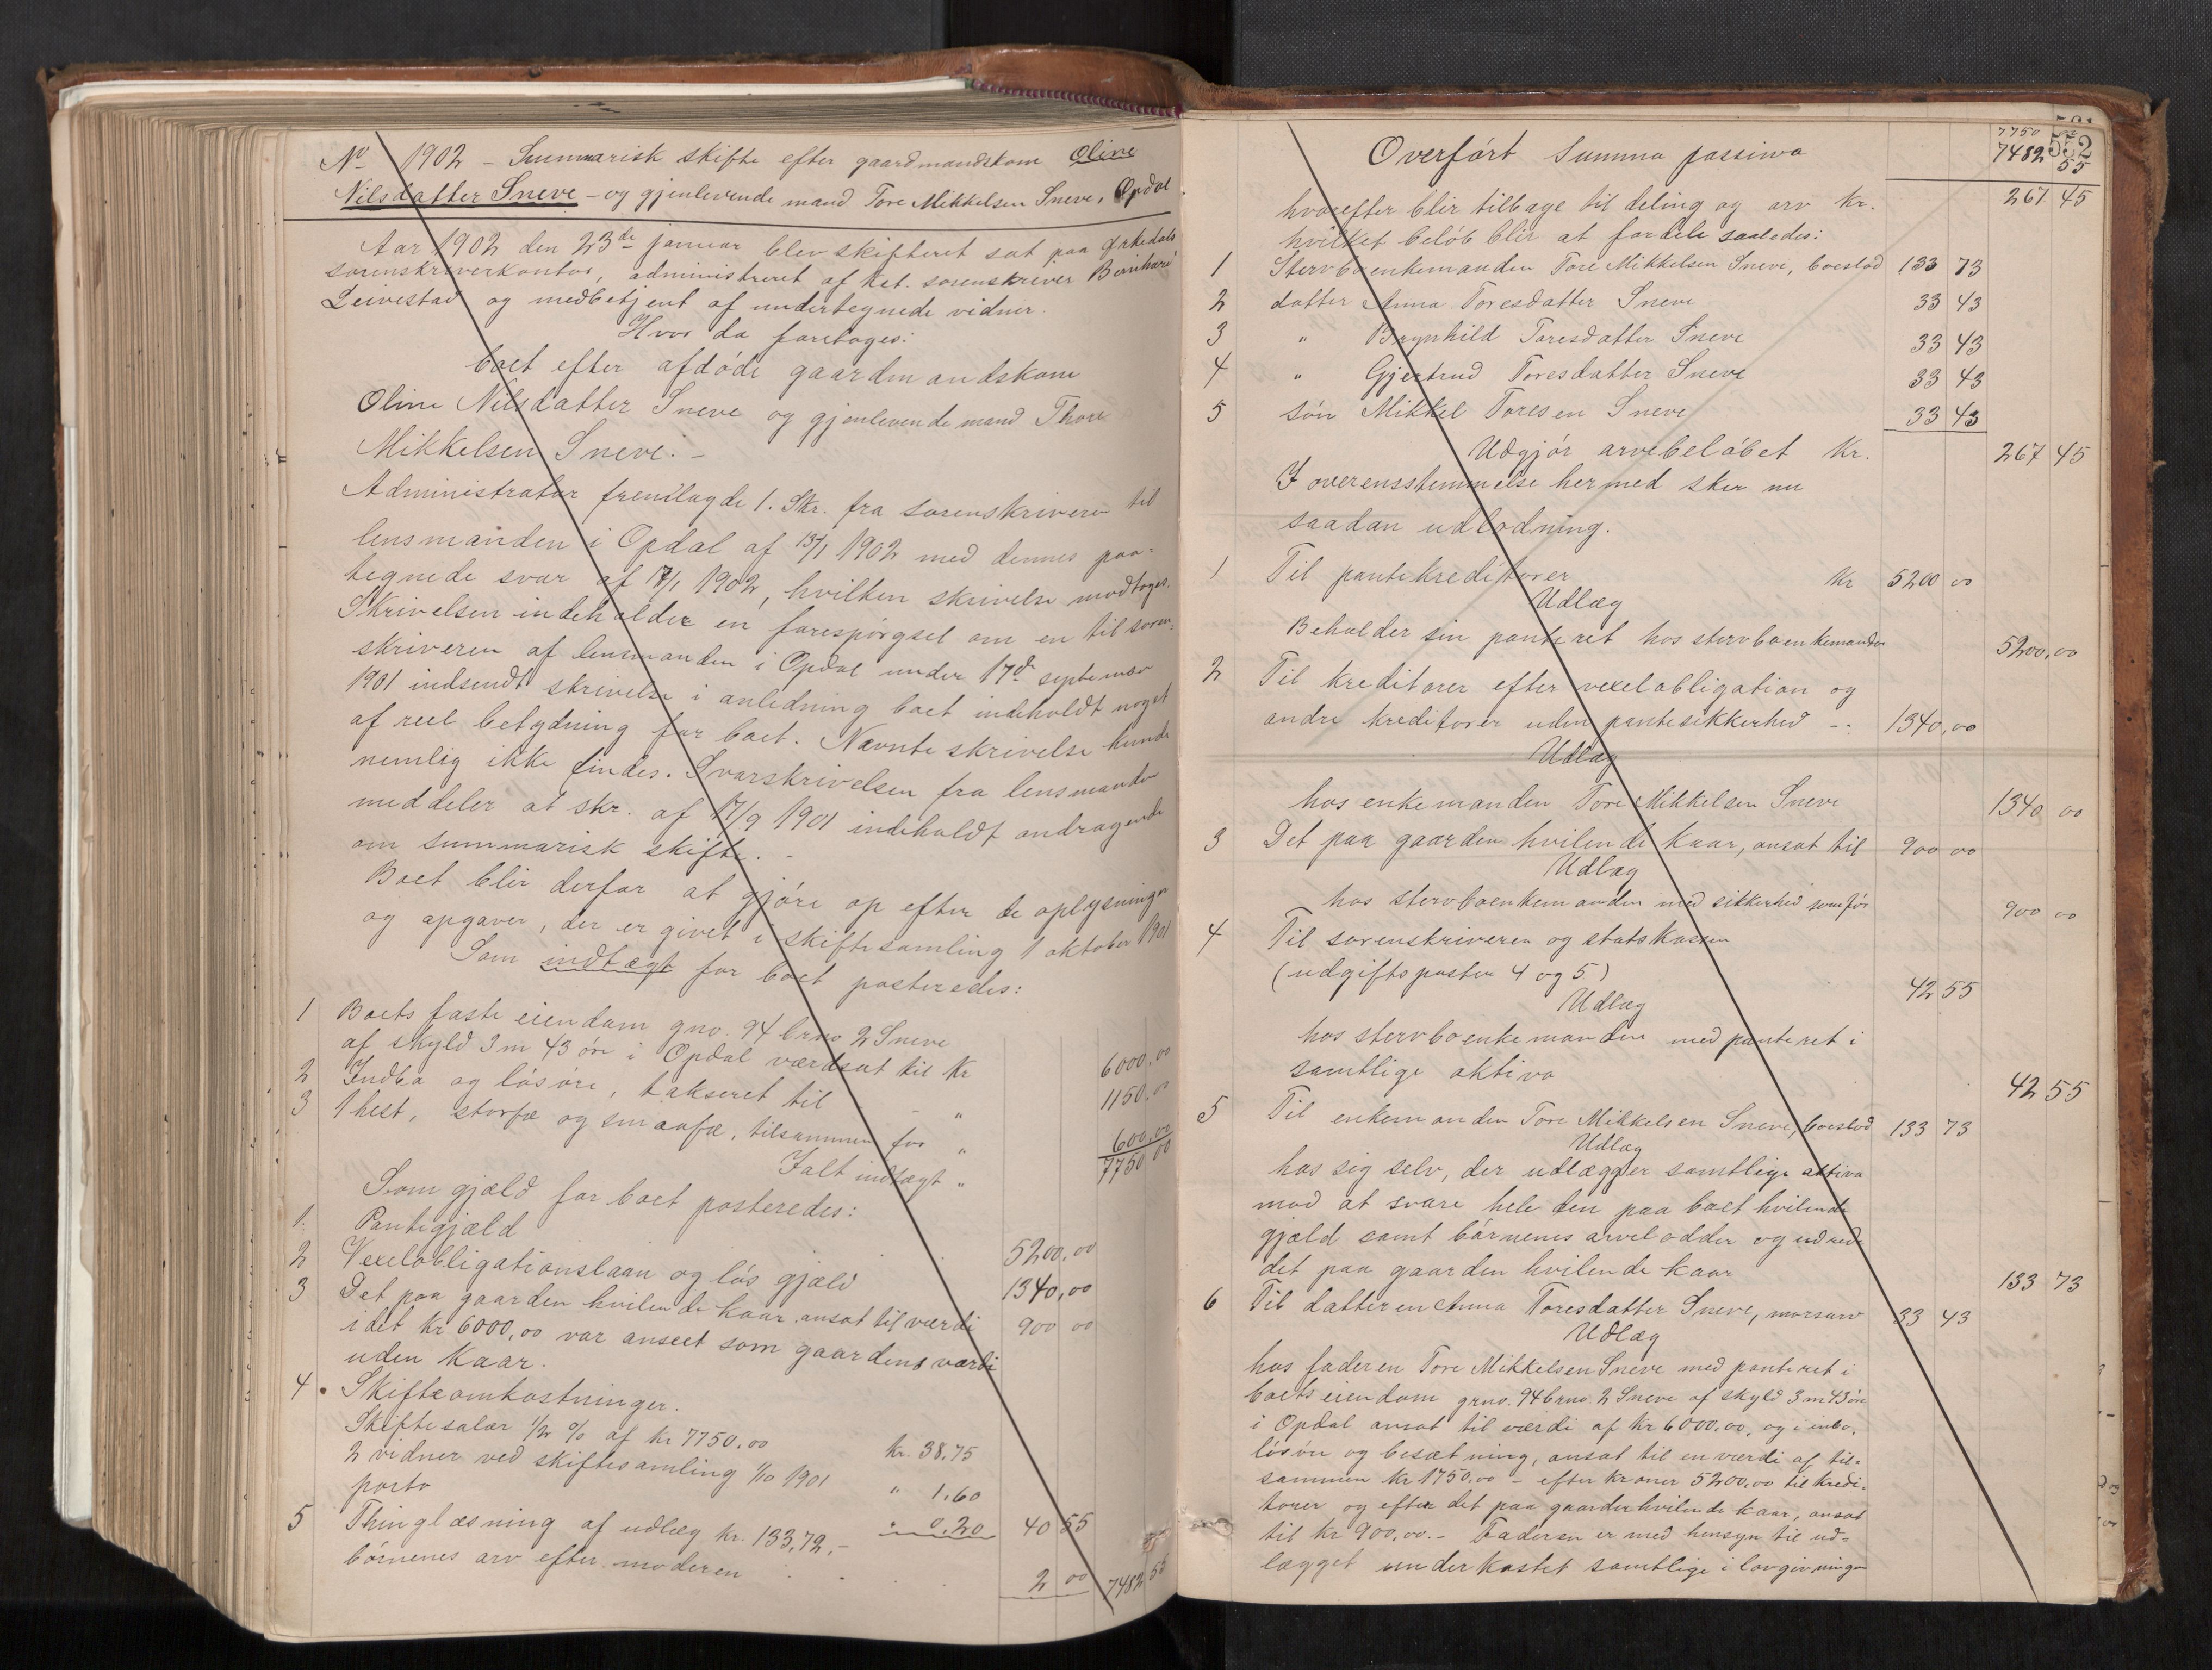 No 1902 – Summarisk skifte efter gaardmandskone Oline
Nilsdatter Sneve – og gjenlevende mand Tore Mikkelsen Sneve, Opdal
Aar 1902 den 23de januar blev skifteret sat paa Ørkedals
sorenskriverkontor, administreret af kst. sorenskriver Bernhard
Leivestad og medbetjent af undertegnede vidner.
Hvor da foretoges:
boet efter afdøde gaardmandskone
Oline Nilsdatter Sneve og gjenlevende mand Thore
Mikkelsen Sneve. –
Administrator fremlagde 1. Skr. fra sorenskriveren til
lensmanden i Opdal af 13/1 1902 med dennes paa-
tegnede svar af 17/1 1902, hvilken skrivelse modtoges.
Skrivelsen indeholder en forespørgsel om en til soren-
skriveren af lensmanden i Opdal under 17de septembr
1901 indsendt skrivelse i anledning boet indeholdt noget
af reel betydning for boet. Nævnte skrivelse kunde
nemlig ikke findes. Svarskrivelsen fra lensmanden
meddeler at skr. af 17/9 1901 indeholdt andragende
om summarisk skifte. –
Boet blir derfor at gjøre op efter de oplysninger
og opgaver, der er givet i skiftesamling 1 oktober 1901
Som indtægt for boet posteredes:
1 Boets faste eiendom gno. 94 brno 2 Sneve
af skyld 3 m 43 øre i Opdal værdsat til kr 6000,00
2 Indbo og løsøre, takseret til " 1150,00
3 1 hest, storfæ og smaafæ, tilsammen for " 600,00
Ialt indtægt " 7750 00
Som gjæld for boet posteredes:
1. Pantegjæld 5200,00
2 Vexelobligationslaan og løs gjæld 1340,00
3 Det paa gaarden hvilende kaar ansat til værdi 900 00
idet kr 6000,00 var anseet som gaardens værdi
uden kaar.
4 Skifteomkostninger.
Skiftesalær 1/2 % af kr 7750,00 kr. 38,75
2 vidner ved skiftesamling 1/10 1901 " 1,60
porto " 0,20 40 55
5 Thinglæsning af udlæg kr. 133,72,-
børnenes arv efter moderen 2 00 7482 55
552
7750
Overført Summa passiva 7482 55
hvorefter blir tilbage til deling og arv kr. 267 45
hvilket beløb blir at fordele saaledes:
1 Stervboenkemanden Tore Mikkelsen Sneve, boeslod 133 73
2 datter Anna Toresdatter Sneve 33 43
3 " Brynhild Toresdatter Sneve 33 43
4 " Gjertrud Toresdatter Sneve 33 43
5 søn Mikkel Toresen Sneve 33 43
Udgjør arvebeløbet kr. 267 45
I overensstemmelse hermed sker nu
saadan udlodning.
1 Til pantekreditorer kr 5200 00
Udlæg
Beholder sin panteret hos stervboenkemanden 5200,00
2 Til kreditorer efter vexelobligation og
andre kreditorer uden pantesikkerhed -. 1340,00
Udlæg
hos enkemanden Tore Mikkelsen Sneve 1340 00
3 Det paa gaarden hvilende kaar, ansat til 900 00
Udlæg
hos stervboenkemanden med sikkerhed som før 900 00
4 Til sorenskriveren og statskassen
(udgiftsposten 4 og 5) 42 55
Udlæg
hos stervboenkemanden med panteret i
samtlige aktiva 42 55
5 Til enkemanden Tore Mikkelsen Sneve, boeslod 133 73
Udlæg
hos sig selv, der udlægger samtlige aktiva
mod at svare hele den paa boet hvilende
gjæld samt børnenes arvelodder og udrede
det paa gaarden hvilende kaar 133 73
6 Til datteren Anna Toresdatter Sneve, morsarv 33 43
Udlæg
hos faderen Tore Mikkelsen Sneve med panteret i
boets eiendom grno. 94 brno. 2 Sneve af skyld 3 m 43 øre
i Opdal ansat til værdi af kr 6000,00, og i indbo,
løsøre og besætning, ansat til en værdi af til-
sammen kr 1750,00 – efter kroner 5200,00 til kredi-
torer og efter det paa gaarden hvilende kaar, ansat
til kr 900,00. – Faderen er med hensyn til ud-
lægget underkastet samtlige i lovgivningen